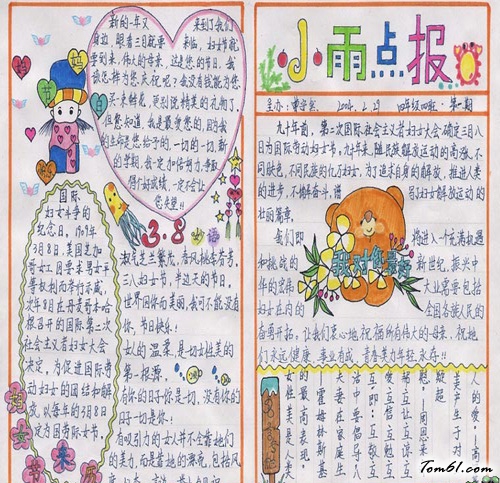 新的一年又 来到了我们
身边,眼看三月就要 来临,妇女节就
要到来,伟大的母亲,过是您的节日,我
该怎样为您庆祝呢?我没有钱能为您
买一束鲜花,更别说精美的礼物了,
但您知道,我是最爱您的,因为我
的生命是您给予的,一切的一切,新
的学期,我一定加倍努力,争取
得个好成绩,一定不会让
您失望!!
妈
妈
节
日
快
乐
国际
妇女斗争的
纪念日。1909年
3月8日,美国芝加
哥女工因要求男女平
等权利而举行示威,
次年8日在丹麦哥本哈
根召开的国际第二次
社会主义者妇女大会
决定,为促进国际劳
动妇女的团结和解
放,以每年的3月8日
定为国际妇女节。
女
节
来
历
3.8
淑气芝兰馨茂,春风桃李春芳。
三八妇女节,半边天的节日,
世界因你而美丽,我可不能没有
你,节日快乐!
女人的温柔,是一切女性美的
第一根源。
有你的日子你是一切,没有你的
日子一切是你。
有吸引力的女人并不全靠她们
的美力,而是靠她的漂亮,包括风
小雨点报
主办:
2004.2.29
四年级四班
第一期
九十年前,第二次国际社会主义者妇女大会确定三月八
日为国际劳动妇女节,九十年来,随民族解放运动的高涨,不
同肤色,不同民族的亿万妇女,为了追求自身的解放,推进人类
的进步,不懈奋斗,谱 写了妇女解放运动的
壮丽篇章。
我们即 将进入一个充满机遇
和挑战的 新世纪,振兴中
华的宏伟 大业需要包括
妇女在内的 全国各族人民的
奋勇开拓,让我们衷心地祝福所有伟大的母亲,祝她
们永远健康、事业有成、青春美力年轻永存!!
我对您最好
人的爱!——高
美产生于对
疑
慰!——周恩来
互让、互谅
爱、互信、互勉、互
互助:互敬、互
活中要倡导
夫妻在家庭生
——雷姆林斯基
的最高表现。
女性美是人类